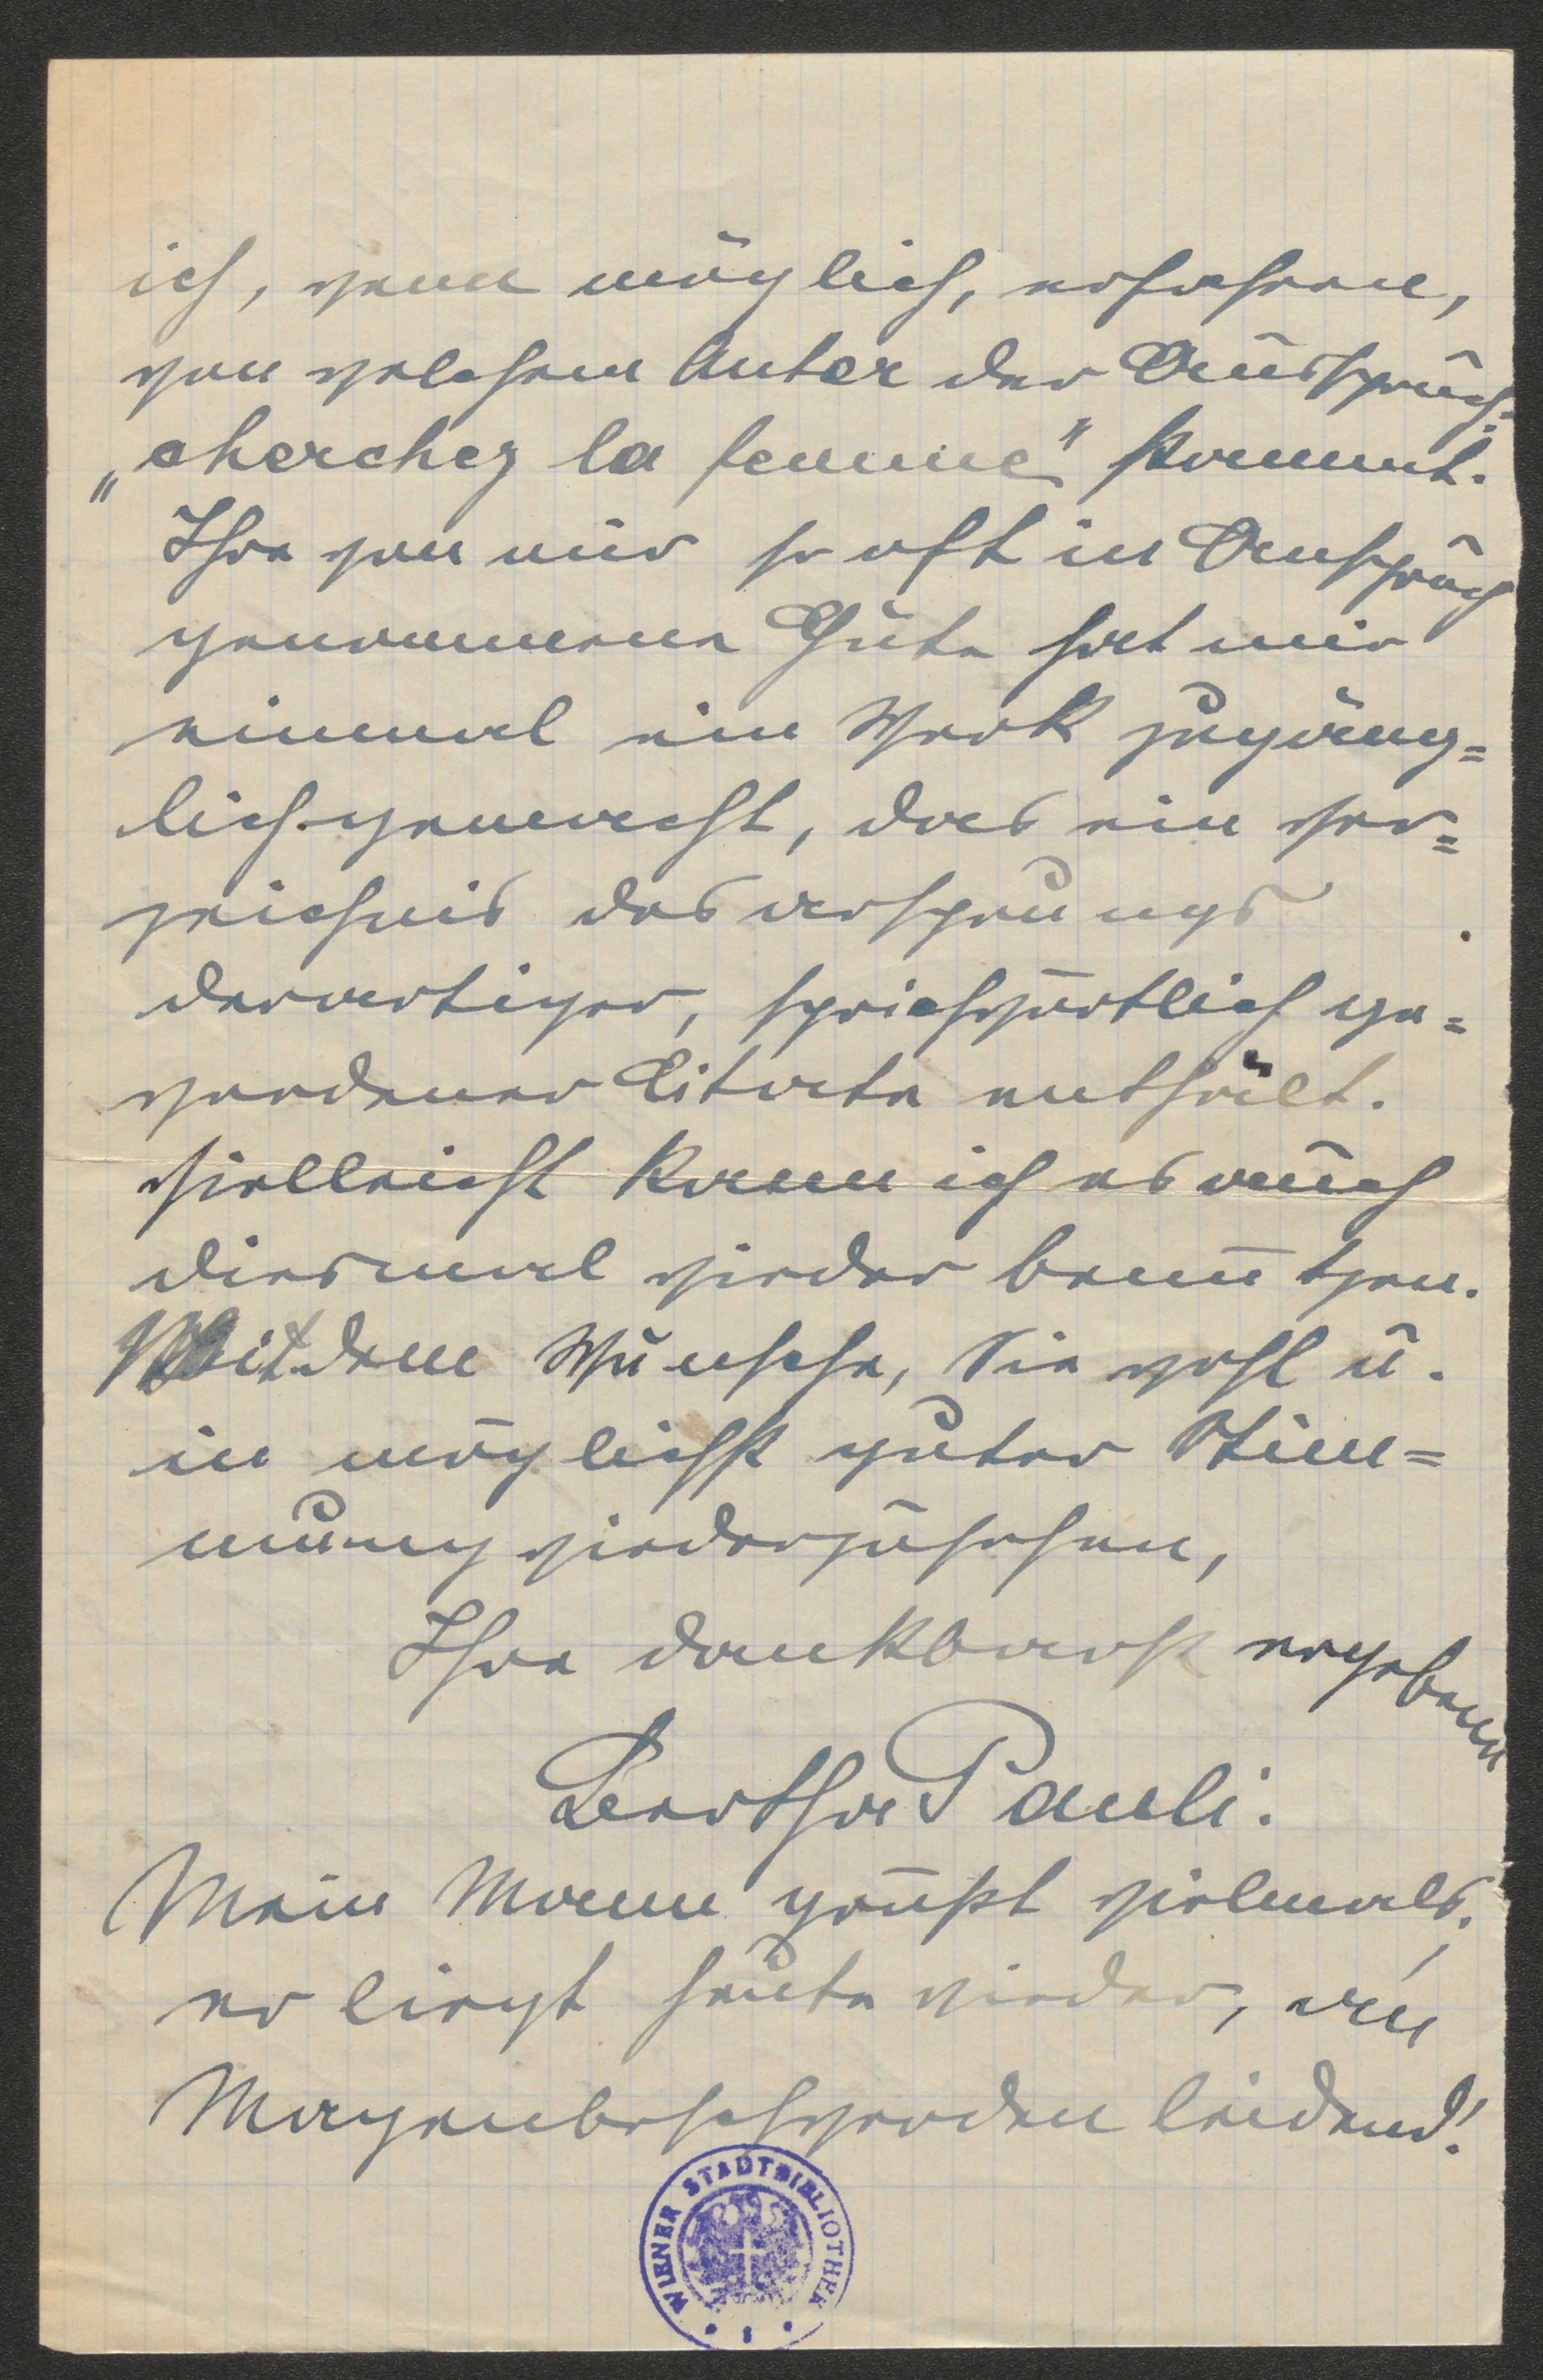 ich, wenn möglich, erfahren,
von welchem Autor der Ausspruch:
„cherchez la femme" kommt.
Ihre von mir so oft in Anspruch
genommene Güte hat mir
einmal ein Werk zugäng=
lich gemacht, das ein Ver=
zeichnis des Ursprungs
derartiger, sprichwörtlich ge=
wordener Citate enthält.
Vielleicht kann ich es auch
diesmal wieder benützen.
Mit dem Wunsche, Sie wohl u.
in möglichst guter Stim=
mung wiederzusehen,
Ihre dankbarst ergebene
Bertha Pauli.
Mein Mann grüßt vielmals,
er liegt heute wieder, an
Magenbeschwerden leidend!
WIENER STADTBIBLIOTHEK